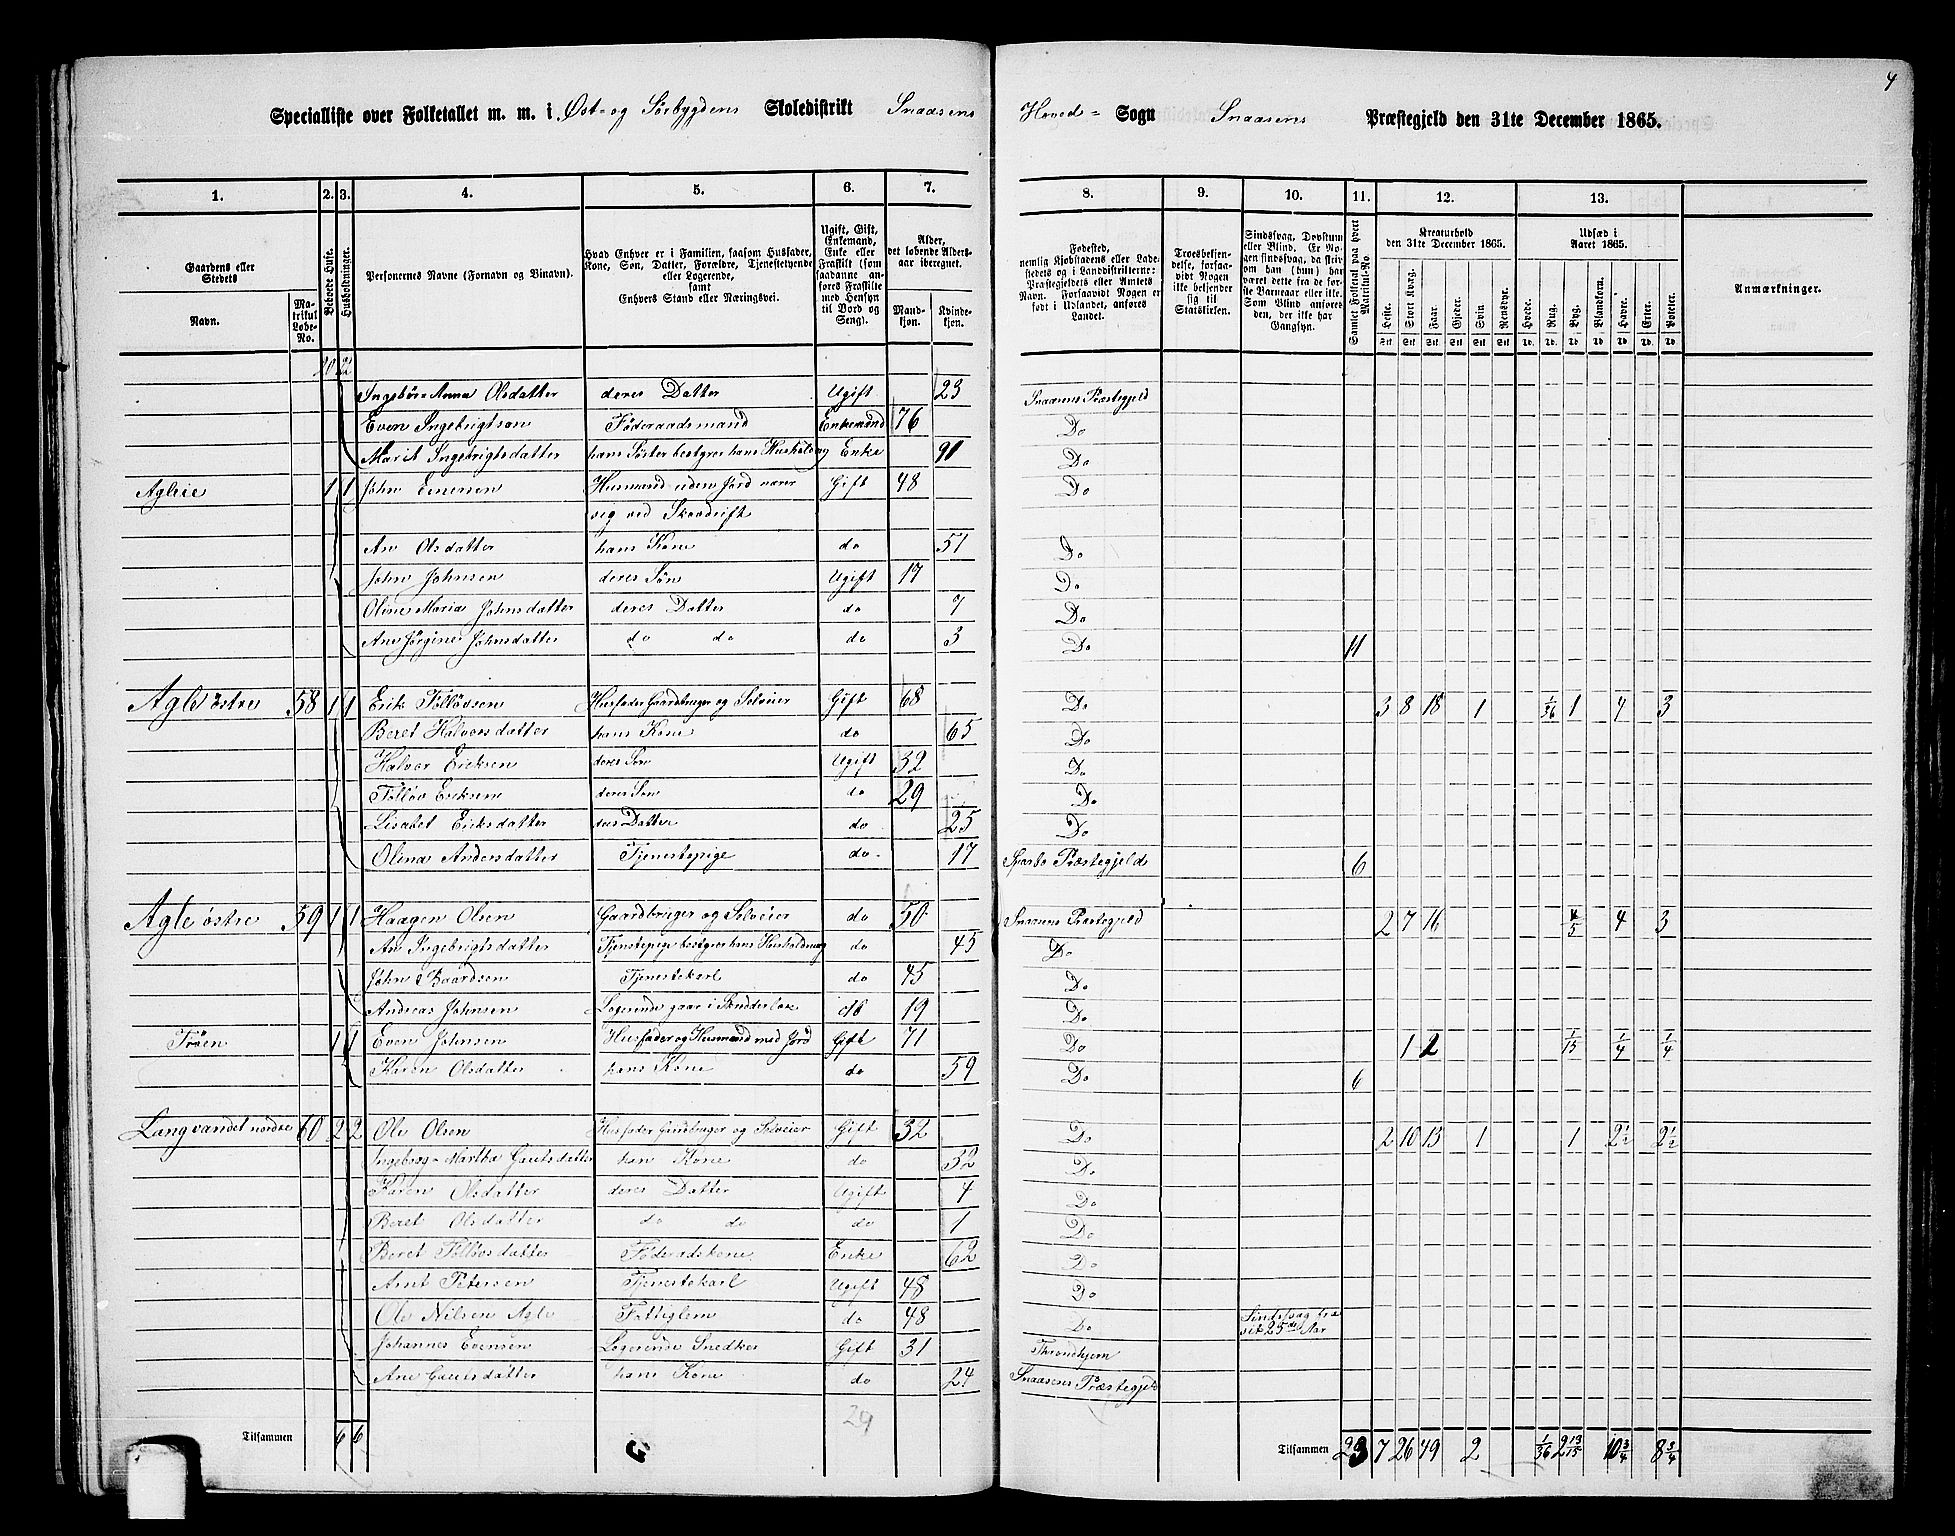 4
Specialliste over Folketallet m. m. i Øst- og Sørbygdens Skoledistrikt Snaasens Hoved- Sogn Snaasens Præstegjeld den 31te December 1865.
1. 2. 3. 4. 5. 6. 7. 8. 9. 10. 11. 12. 13.
Gaardens eller Stedets Navn.
Matrikul Løbe-No.
Beboede Huse.
Husholdninger.
Personernes Navne (Fornavn og Binavn).
Hvad Enhver er i Familien, saasom Husfader, Kone, Søn, Datter, Forældre, Tjenestetyende eller Logerende, samt Enhvers Stand eller Næringsvei.
Ugift, Gift, Enkemand, Enke eller Fraskilt (som saadanne anføres Fraskilte med Hensyn til Bord og Seng).
Alder, det løbende Aldersaar iberegnet.
Mandkjøn. Kvindekjøn.
Fødested, nemlig Kjøbstadens eller Ladestedets og i Landdistrikterne: Præstegjeldets eller Amtets Navn. Forsaavidt Nogen er født i Udlandet, anføres Landet.
Troesbekjendelse, forsaavidt Nogen ikke bekjender sig til Statskirken.
Sindssvag, Døvstum eller Blind. Er Nogen sindssvag, da skrives han (hun) har været dette fra de første Barneaar eller ikke. Som Blind anføres den, der ikke har Gangsyn.
Samlet Folketal paa hvert Matrikul-No.
Kreaturhold den 31te December 1865.
Heste. Stort Kvæg. Faar. Gjeder. Svin. Rensdyr.
Udsæd i Aaret 1865.
Hvede. Rug. Byg. Blandkorn. Havre. Erter. Poteter.
Anmærkninger.
Ingebor-Anna Olsdatter deres Datter Ugift 23 Snaasens Præstegjeld
Even Ingebrigtsøn Føderaadsmand Enkemand 76 Do
Marit Ingebrigtsdatter hans Søster bestyrer hans Husholdning Enke 91 Do
Agleie 1 1 John Enersen Husmand uden Jord nærer Gift 48 Do
sig ved Skovdrift
An Olsdatter hans Kone do 51 Do
John Johnsen deres Søn Ugift 17 Do
Oline Maria Johnsdatter deres Datter do 7 Do
Ane Jørgine Johnsdatter do do do 3 Do 11
Agle østre 58 1 1 Erik Tølløvsen Husfader Gaardbruger og Selveier Gift 68 Do 3 8 18 1 1/36 1 4 3
Beret Halvorsdatter hans Kone do 65 Do
Halvor Eriksen deres Søn Ugift 32 Do
Tølløv Eriksen deres Søn do 29 Do
Lisabet Eriksdatter deres Datter do 25 Do
Olina Andersdatter Tjenestepige do 17 Sparbo Præstegjeld 6
Agle østre 59 1 1 Haagen Olsen Gaardbruger og Selveier do 50 Snaasens Præstegjeld 2 7 16 4/5 4 3
An Ingebrigtsdatter Tjenestepige bestyrer hans Husholdning do 45 Do
John Baardsen Tjenestekarl do 45 Do
Andreas Johnsen Logerende gaar i Skrædderlære do 19 Do
Trøen 1 1 Even Johnsen Husfader og Husmand med Jord Gift 71 Do 1 2 1/15 1/4 1/4
Karen Olsdatter hans Kone do 59 Do 6
Langvandet nordre 60 2 2 Ole Olsen Husfader Gaardbruger og Selveier Gift 32 Do 2 10 13 1 1 2 1/2 2 1/2
Ingebrog-Martha Gautsdatter han Kone do 32 Do
Karen Olsdatter deres Datter Ugift 4 Do
Beret Olsdatter do do do 1 Do
Beret Tølløvsdatter Føderadskone Enke 62 Do
Arnt Petersen Tjenestekarl Ugift 48 Do
Ole Nilsen Agle Fattiglem do 48 Do Sindssvag fra sit 25de Aar
Johannes Evensen Logerende Snedker Gift 31 Throndhjem
Ane Gautsdatter hans Kone do 24 Snaasens Præstegjeld
29
Tilsammen 6 6
Tilsammen 23 7 26 49 2 1/36 2 13/15 10 3/4 8 3/4